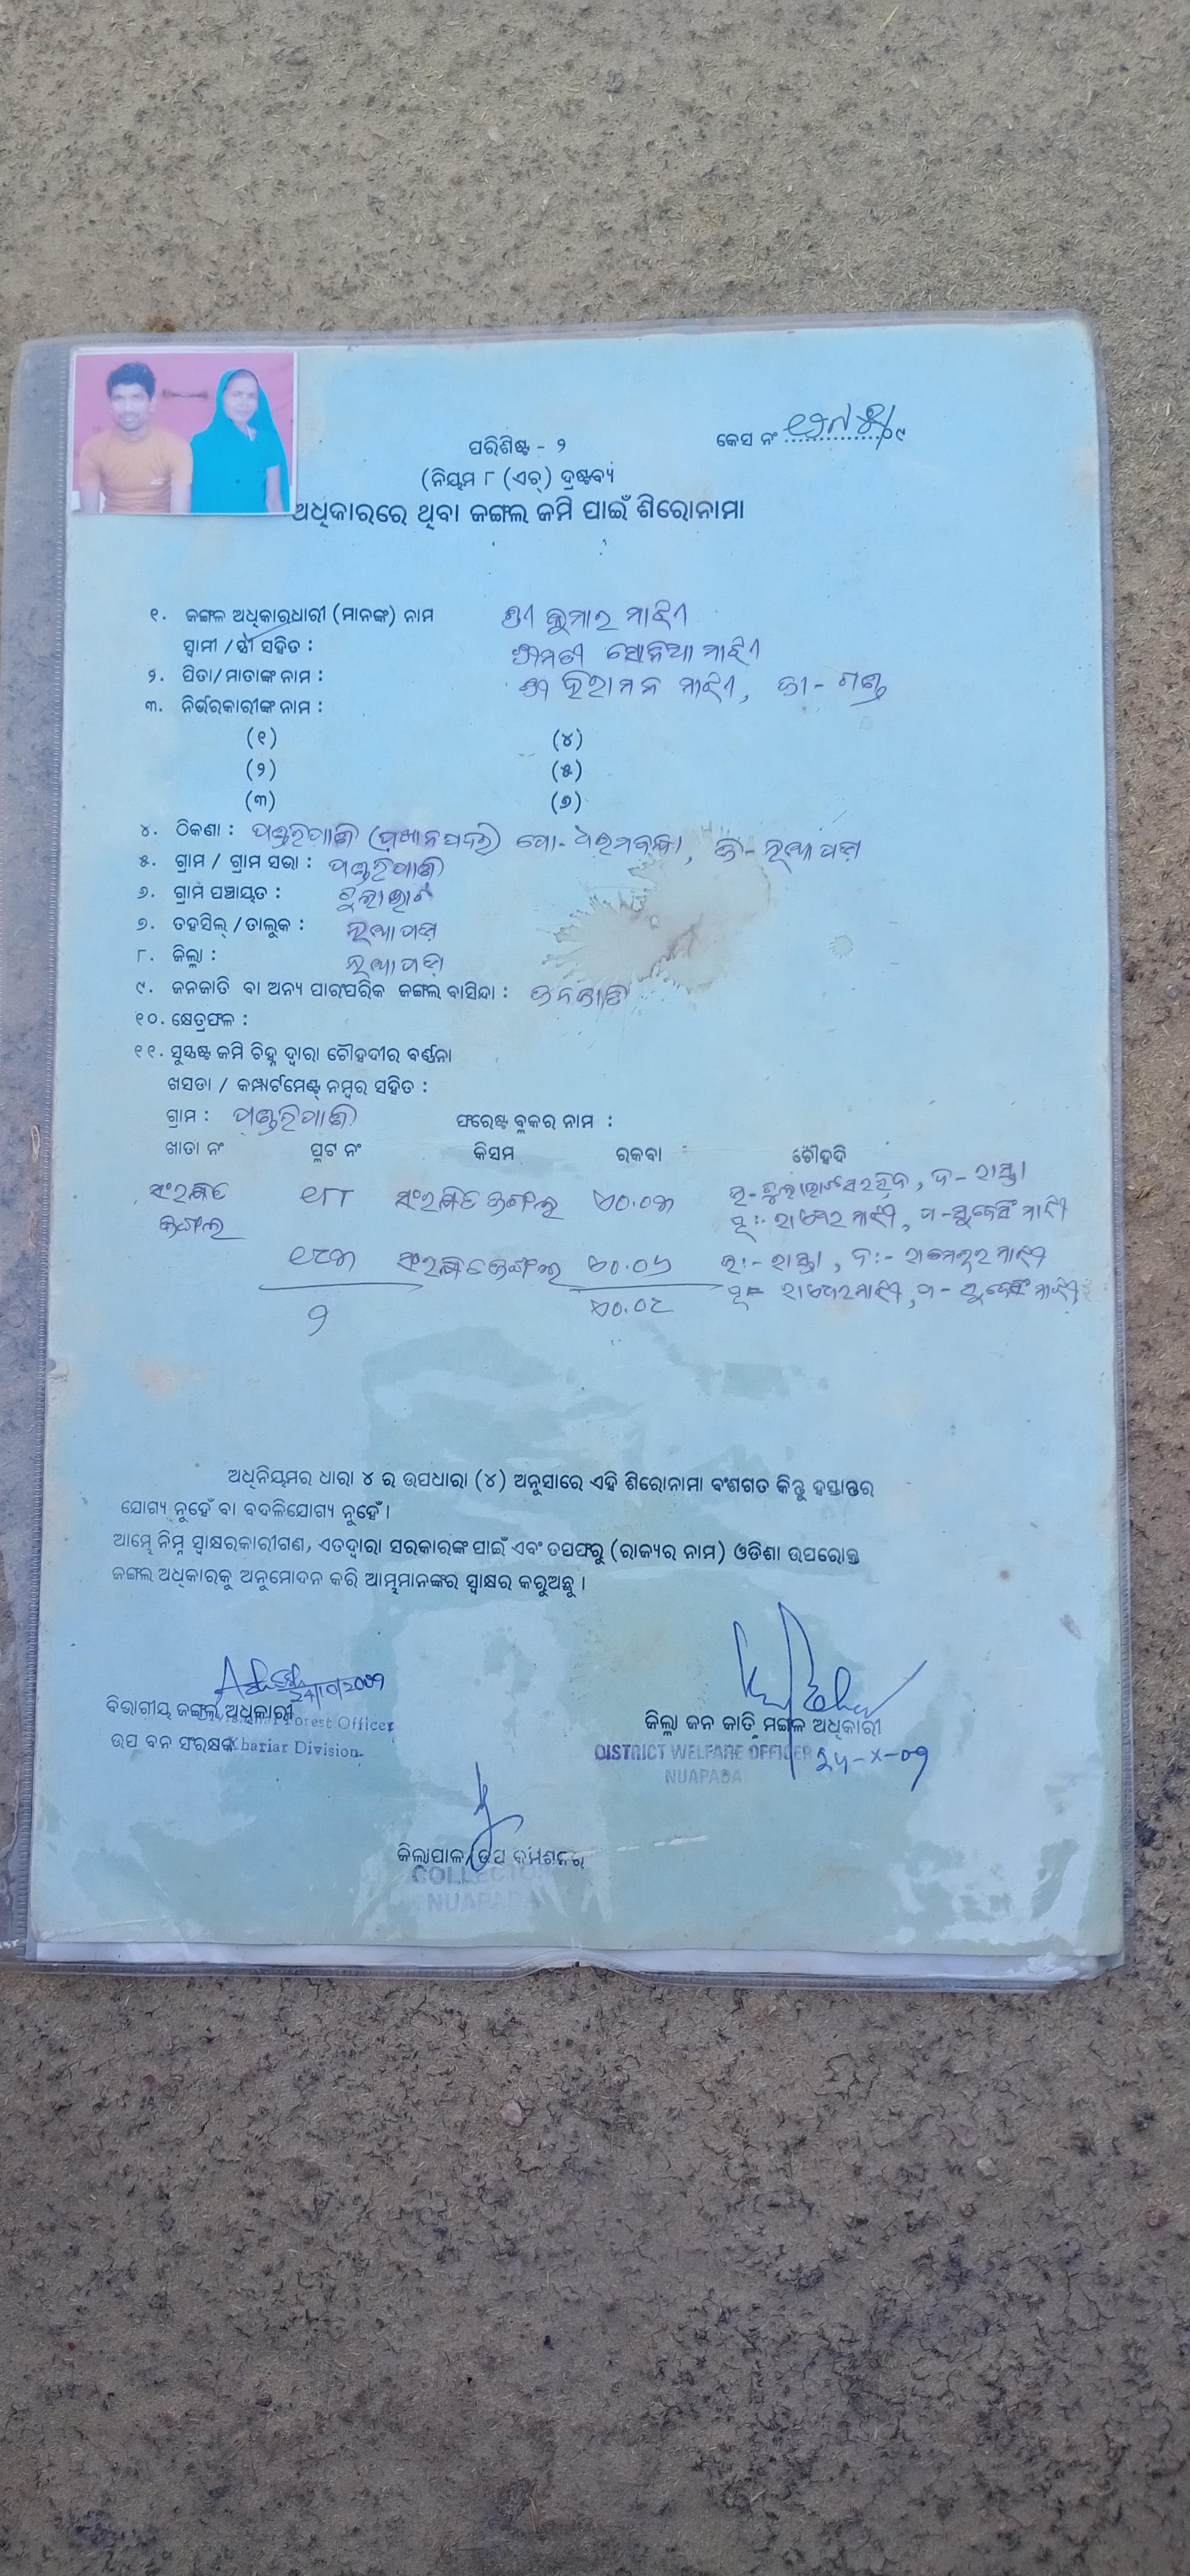 କେସ ନଂ ୧୨୩୫/୦୯
ପରିଶିଷ୍ଟ - ୨
(ନିୟମ ୮ (ଏଚ୍) ଦ୍ରଷ୍ଟବ୍ୟ
ଅଧିକାରରେ ଥିବା ଜଙ୍ଗଲ ଜମି ପାଇଁ ଶିରୋନାମା
୧. ଜଙ୍ଗଲ ଅଧିକାରଧାରୀ (ମାନଙ୍କ) ନାମ ଶ୍ରୀ କୁମାର ମାଝୀ
ସ୍ୱାମୀ / ସ୍ତ୍ରୀ ସହିତ : ଶ୍ରୀମତୀ ସୋନିଆ ମାଝୀ
୨. ପିତା/ମାତାଙ୍କ ନାମ : ଶ୍ରୀ ହିରାମନ ମାଝୀ, ଜା - ଗଣ୍ଡ
୩. ନିର୍ଭରକାରୀଙ୍କ ନାମ :
(୧) (୪)
(୨) (୫)
(୩) (୭)
୪. ଠିକଣା : ପଣ୍ଡରିପାଣି ପୋ- ଧରମବନ୍ଧା, ଜି - ନୂଆପଡ଼ା
୫. ଗ୍ରାମ / ଗ୍ରାମ ସଭା : ପଣ୍ଡରିପାଣି
୬. ଗ୍ରାମ ପଞ୍ଚାୟତ :
୭. ତହସିଲ୍ / ତାଲୁକ : ନୂଆପଡ଼ା
୮. ଜିଲ୍ଲା : ନୂଆପଡ଼ା
୯. ଜନଜାତି ବା ଅନ୍ୟ ପାରଂପରିକ ଜଙ୍ଗଲ ବାସିନ୍ଦା : ଜନଜାତି
୧୦. କ୍ଷେତ୍ରଫଳ :
୧୧. ସୁସ୍ପଷ୍ଟ ଜମି ଚିହ୍ନ ଦ୍ୱାରା ଚୌହଦୀର ବର୍ଣ୍ଣନା
ଖସଡା / କମ୍ପାର୍ଟମେଣ୍ଟ୍ ନମ୍ବର ସହିତ :
ଗ୍ରାମ : ପଣ୍ଡରିପାଣି ଫରେଷ୍ଟ ବ୍ଳକର ନାମ :
ଖାତା ନଂ ପ୍ଲଟ ନଂ କିସମ ରକବା ଚୌହଦି
ସଂରକ୍ଷିତ ଜଙ୍ଗଲ ୧୮୮ ସଂରକ୍ଷିତ ଜଙ୍ଗଲ ଏ୦.୦୩ ଦ - ରାସ୍ତା
ପ - ସୁକସିଂ ମାଝୀ
୧୯୩ ସଂରକ୍ଷିତ ଜଙ୍ଗଲ ଏ୦.୦୬ ଉ:- ରାସ୍ତା, ଦ:- ରାମେଶ୍ୱର ମାଝୀ
୨ ଏ୦.୦୯ ପ - ସୁକସିଂ ମାଝୀ
ଅଧିନିୟମର ଧାରା ୪ ର ଉପଧାରା (୪) ଅନୁସାରେ ଏହି ଶିରୋନାମା ବଂଶଗତ କିନ୍ତୁ ହସ୍ତାନ୍ତର
ଯୋଗ୍ୟ ନୁହେଁ ବା ବଦଳିଯୋଗ୍ୟ ନୁହେଁ ।
ଆମ୍ଭେ ନିମ୍ନ ସ୍ୱାକ୍ଷରକାରୀଗଣ, ଏତଦ୍ୱାରା ସରକାରଙ୍କ ପାଇଁ ଏବଂ ତପଫରୁ (ରାଜ୍ୟର ନାମ) ଓଡିଶା ଉପରୋକ୍ତ
ଜଙ୍ଗଲ ଅଧିକାରକୁ ଅନୁମୋଦନ କରି ଆମ୍ଭମାନଙ୍କର ସ୍ୱାକ୍ଷର କରୁଅଛୁ ।
ବିଭାଗୀୟ ଜଙ୍ଗଲ ଅଧିକାରୀ
Divisional Forest Officer
ଉପ ବନ ସଂରକ୍ଷକ Khariar Division.
ଜିଲ୍ଲା ଜନ ଜାତି ମଙ୍ଗଳ ଅଧିକାରୀ
DISTRICT WELFARE OFFICER
NUAPADA
ଜିଲ୍ଲାପାଳ/ଉପ କମିଶନର
COLLECTOR
NUAPADA